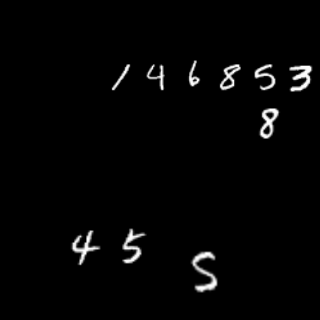 146853
8
45
5